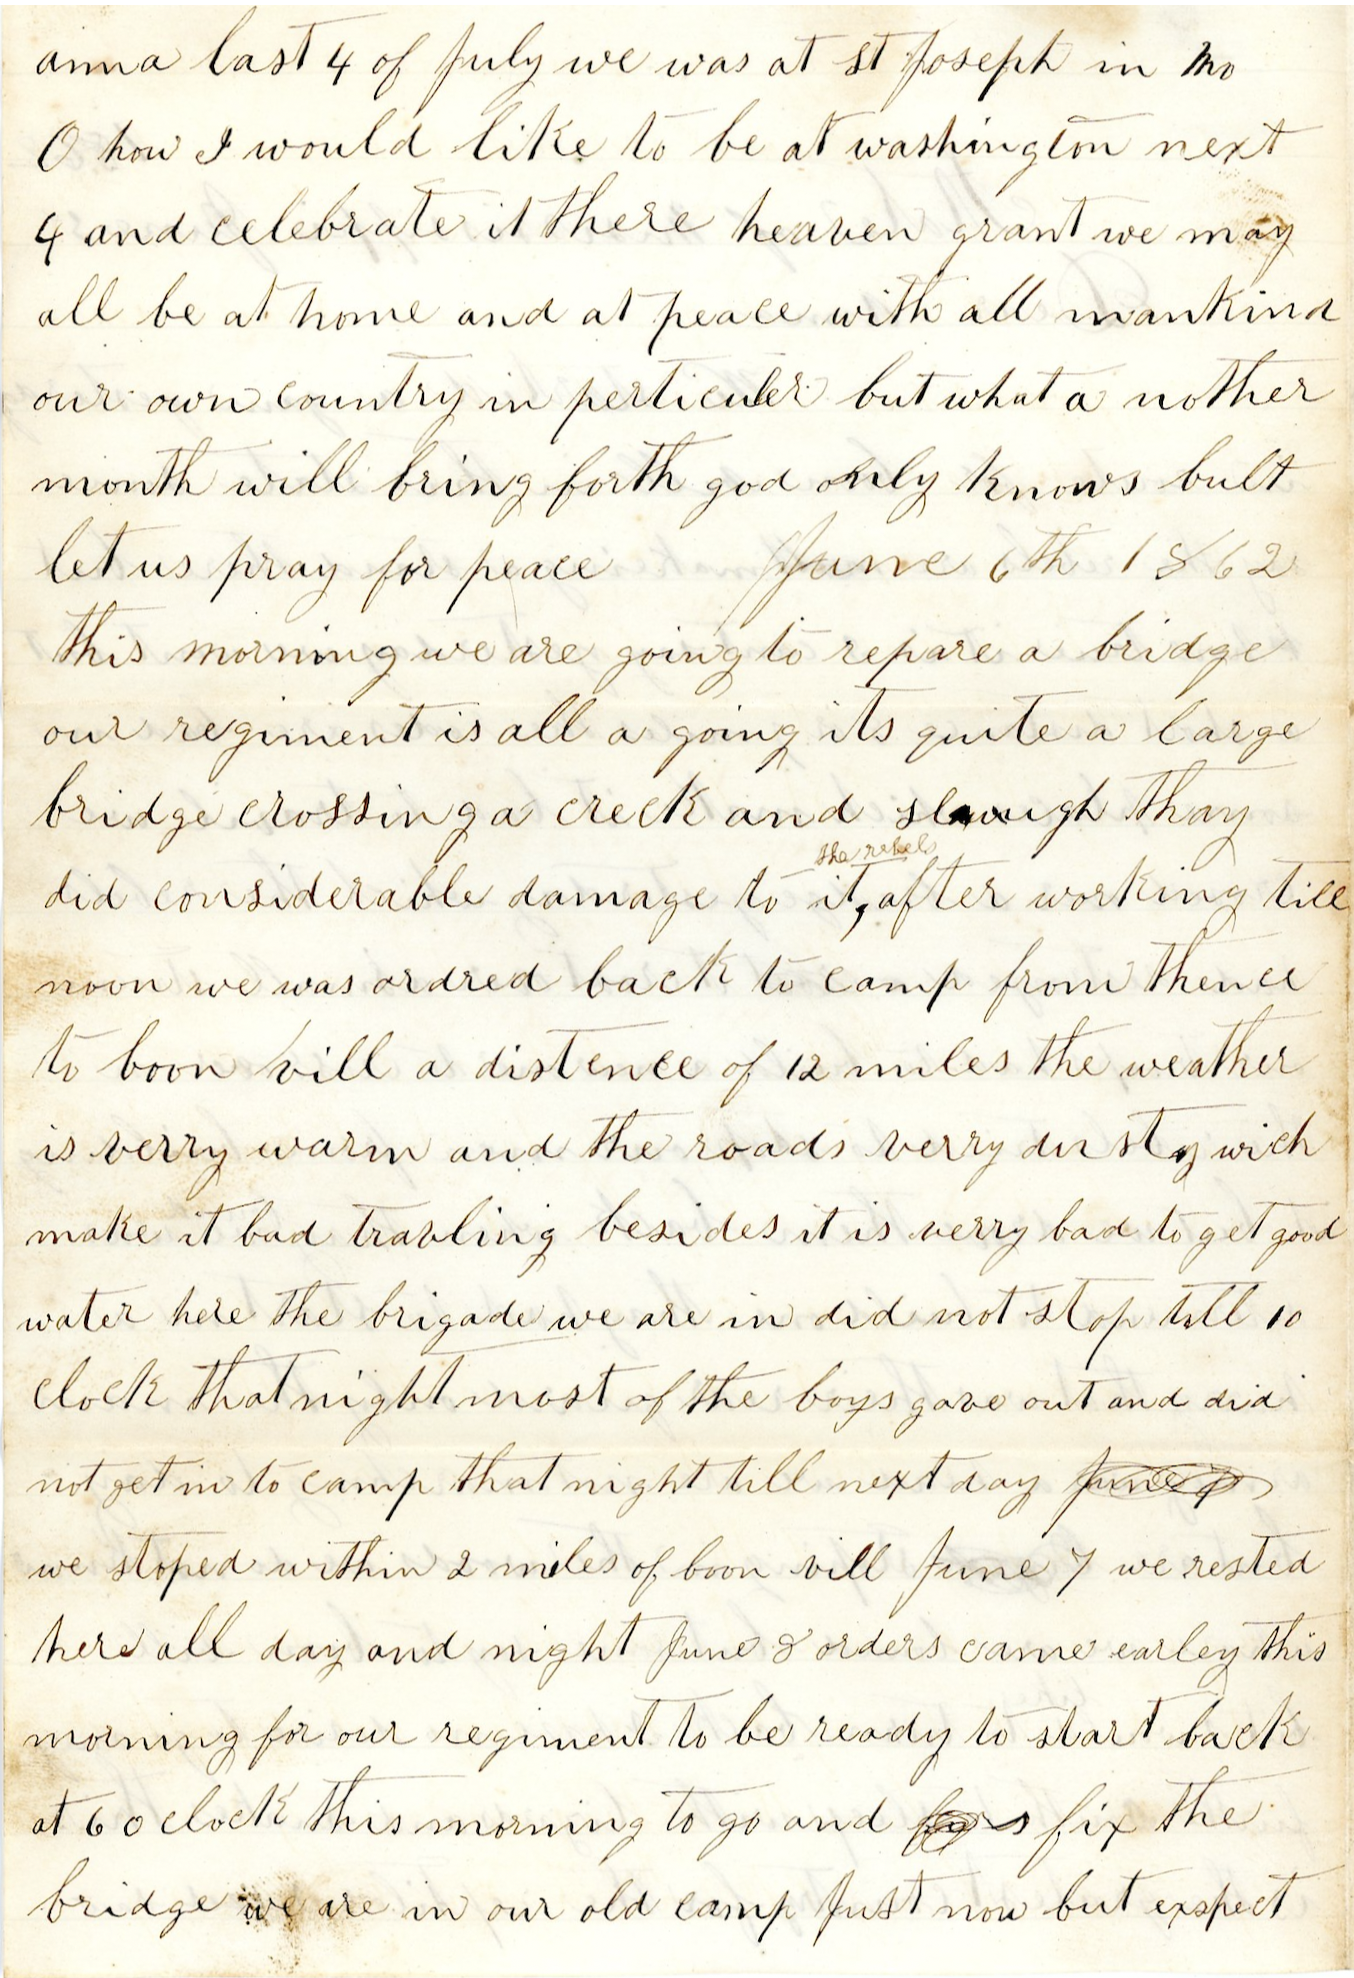 anna last 4 of July we was at st Joseph in Mo
O how I would like to be at washington next
4 and celebrate it there heaven grant we may
all be at home and at peace with all mankind
our own country in perticuler but what a nother
month will bring forth god only knows bult
let us pray for peace June 6th 1862
this morning we are going to repare a bridge
our regiment is all a going its quite a large
bridge crossing a creek and slough thay
the rebels
did considerable damage to it, after working till
noon we was ordred back to camp from thence
to boon vill a distence of 12 miles the weather
is verry warm and the roads verry dusty wich
make it bad travling besides it is verry bad to get good
water here the brigade we are in did not stop till 10
clock that night most of the boys gave out and did
not get in to camp that night till next day June 7
we stoped within 2 miles of boon vill June 7 we rested
here all day and night June 8 orders came earley this
morning for our regiment to be ready to start back
at 6 o clock this morning to go and fix the
bridge we are in our old camp Just now but exspect